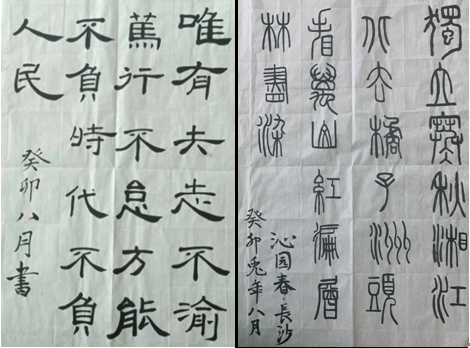 唯有矢志不渝
篤行不怠方能
不負時代不負
人民
癸卯八月書
獨立寒秋湘江
北去橘子洲頭
看萬山紅遍層
林盡染
沁园春·長沙
癸卯兔年八月